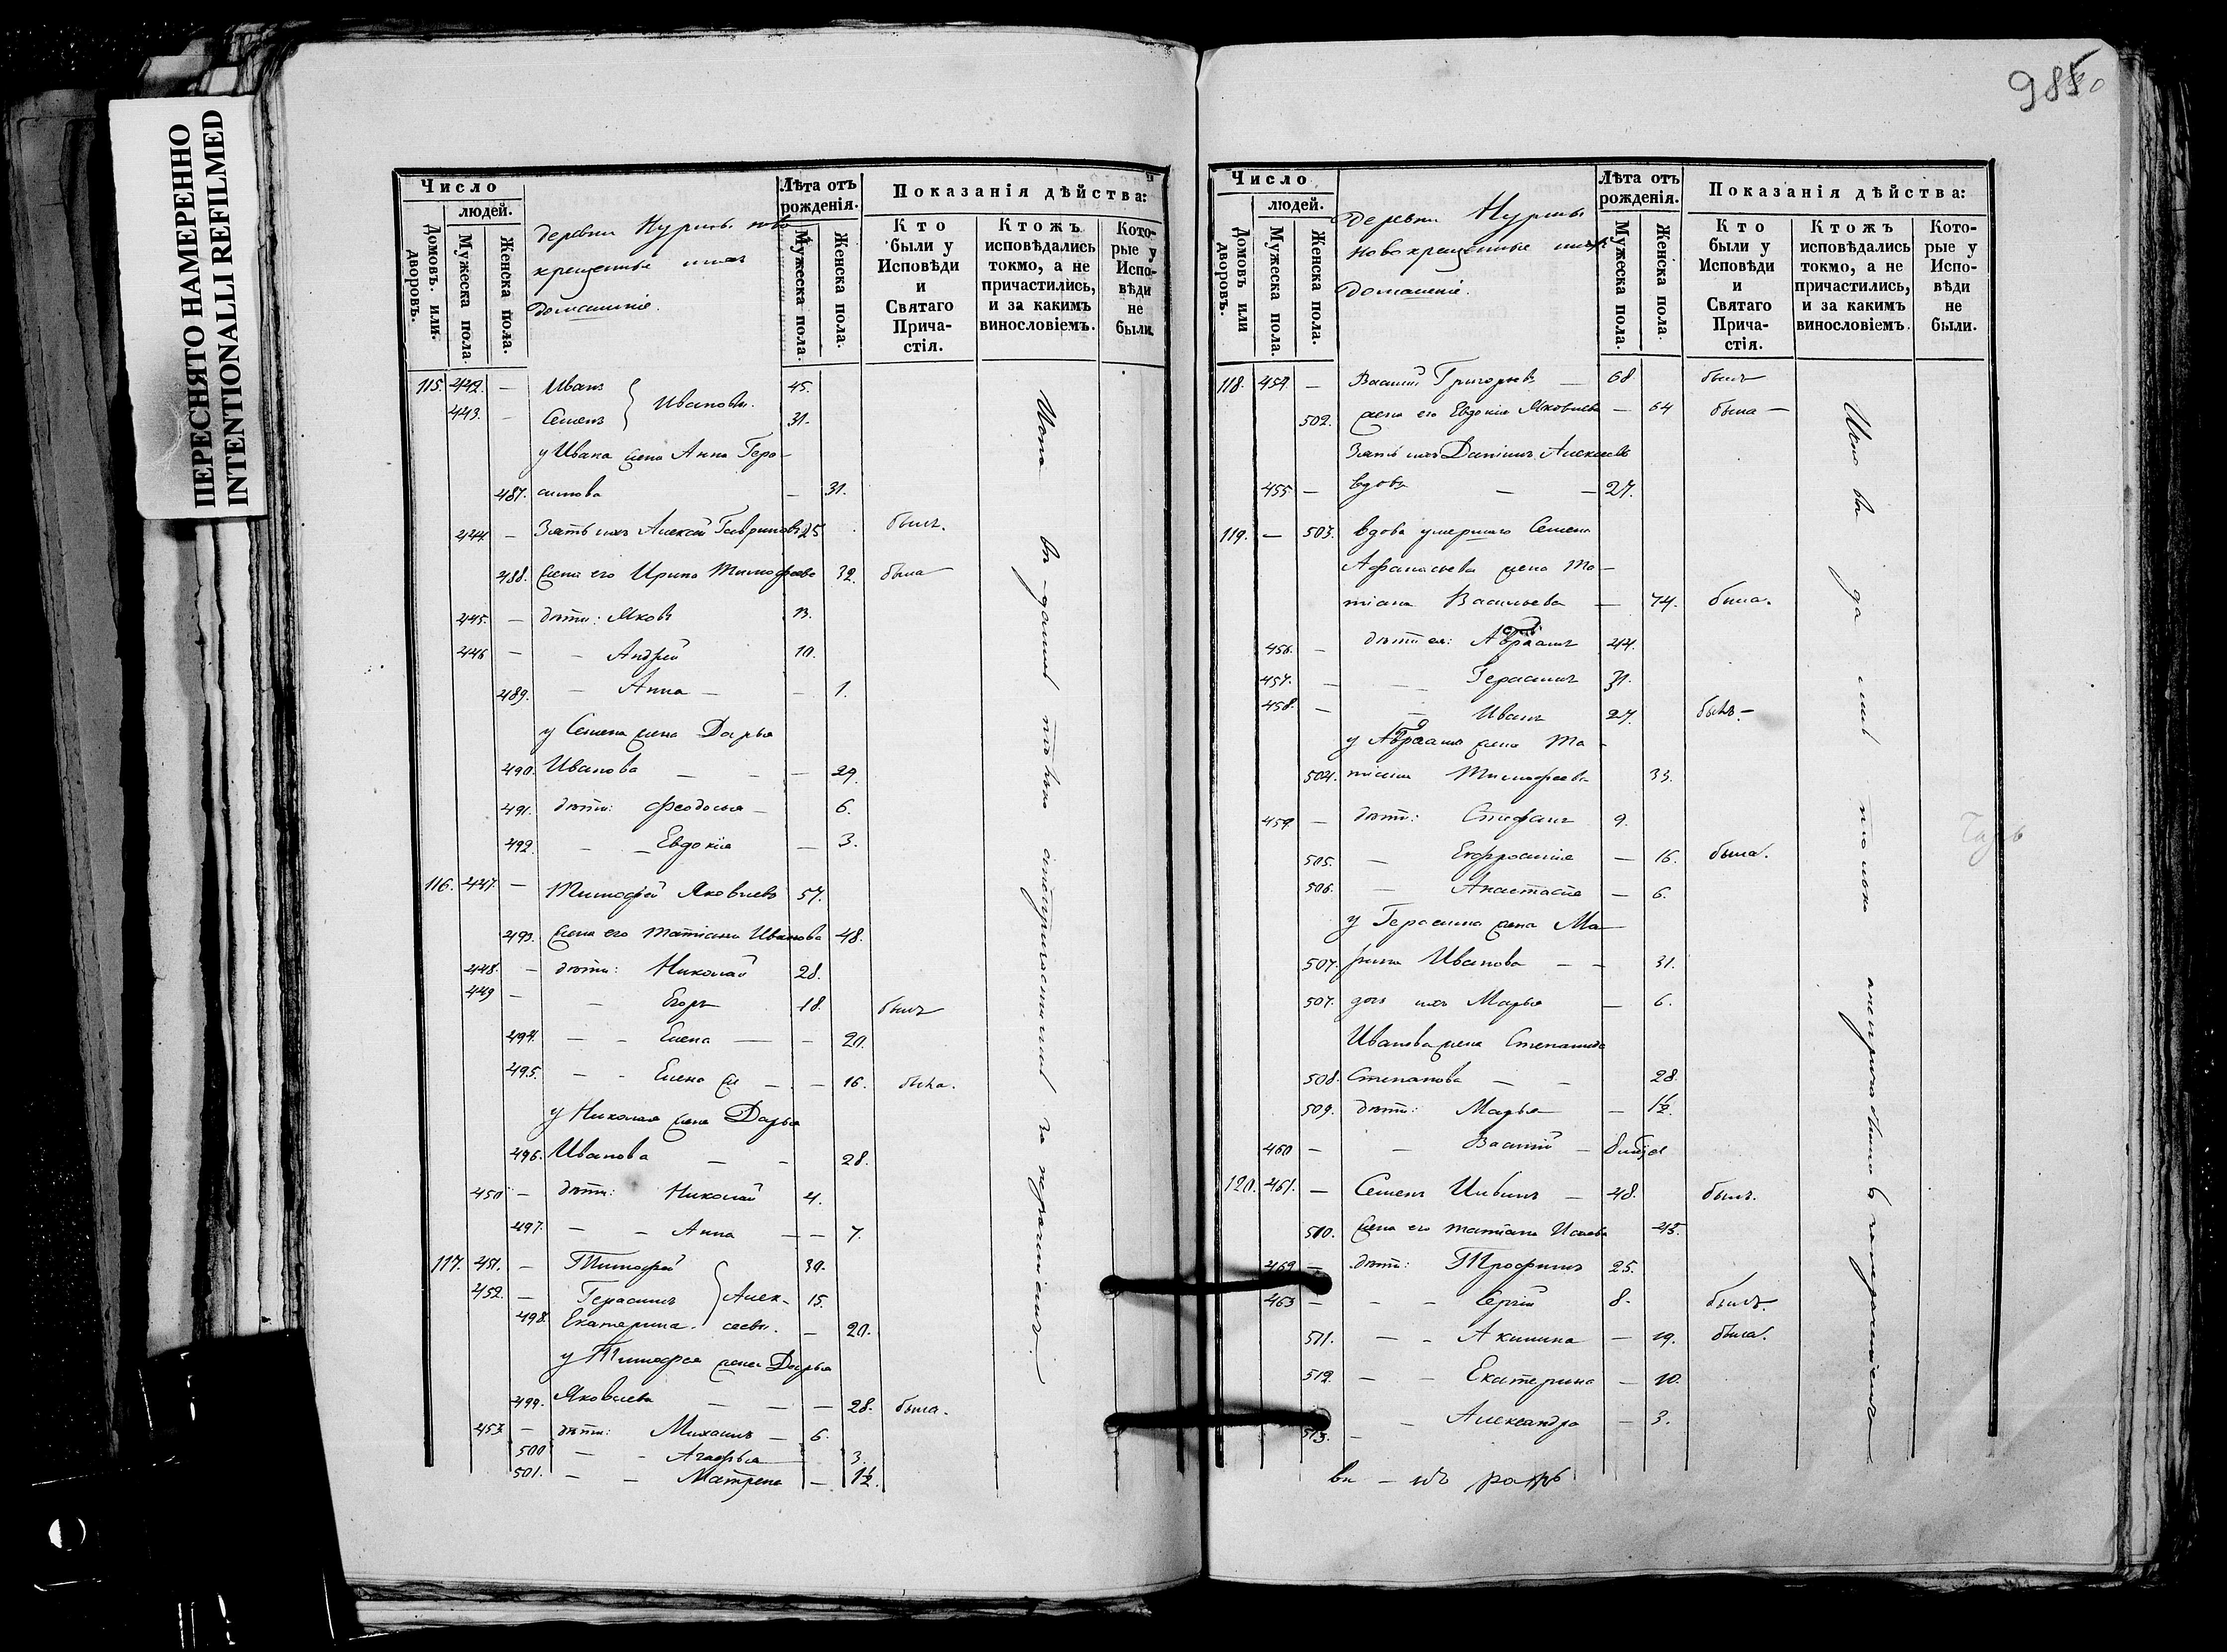 ПЕРЕСНЯТО НАМЕРЕННО
INTENTIONALLI REFILMED
985
Число
людей.
Домовъ или дворовъ.
Мужеска пола.
Женска пола.
деревни ново
крещенные
домашніе.
Лѣта отъ
рожденія.
Мужеска пола.
Женска пола.
Показанія дѣйства:
Кто
были у
Исповѣди
и
Святаго
Прича-
стія.
Ктожъ
исповѣдались
токмо, а не
причастились,
и за какимъ
винословіемъ.
Кото-
рые у
Испо-
вѣди
не
были.
115. 442. — Иванъ } Ивановы. 45.
443. — Семенъ 31.
у Ивана жена Анна Гера-
487. симова — 31.
444. — Зять ихъ Алексѣй Гавриловъ 25 былъ.
488. жена его Ирина Тимофеева 32. была
445. — дѣти: Яковъ 13.
446 — — Андрей 10.
489. — Анна — — 1.
у Семена жена Дарья
490. Иванова — — — 29.
491. дѣти: Феодосья — 6.
492. — — Евдокія — 3.
116. 447. — Тимофей Яковлевъ 57.
493. жена его Татіана Иванова 48.
448. — дѣти: Николай 28.
449 — — Егоръ 18. былъ
494. — — Елена — — 20.
495. — — Елена — — 16. была.
у Николая жена Дарья
496. Иванова — — 28.
450 — дѣти: Николай 4.
497. — — Анна — — 7.
117. 451. — Тимофей 30.
452. — Герасимъ } Алек- 15.
498. Екатерина. сеевы. — 20.
у Тимофея жена Дарья
499. Яковлева — — — 28. была.
453. — дѣти: Михаилъ — 6.
500 — — Агафья 3.
501. — — Матрена — 1½.
Число
людей.
Домовъ или дворовъ.
Мужеска пола.
Женска пола.
деревни
новокрещенные
домашніе.
Лѣта отъ
рожденія.
Мужеска пола.
Женска пола.
Показанія дѣйства:
Кто
были у
Исповѣди
и
Святаго
Прича-
стія.
Ктожъ
исповѣдались
токмо, а не
причастились,
и за какимъ
винословіемъ.
Кото-
рые у
Испо-
вѣди
не
были.
118. 454. — Василій Григорьевъ — 68 былъ
502. жена его Евдокія Яковлева — 64 была —
Зять ихъ Даніилъ Алексеевъ
455. — вдовъ — — 27.
119. — 503. вдова умершаго Семена
Афанасьева жена Та-
тіана Васильева — 74. была.
456. — дѣти ея: Авраамъ 44.
457. — — Герасимъ 31.
458. — — Иванъ 27. былъ —
у Авраама жена Та-
504. тіана Тимофеева 33.
459. — дѣти: Стефанъ 9.
505. — Евфросинія — 16. была.
506. — Анастасія — 6.
у Герасима жена Ма-
507. рина Иванова — — 31.
507. дочь ихъ Марья — 6.
Иванова жена Степанида
508. Степанова — — 28.
509. дѣти: Марья — 1½.
460 — — Василій —
120. 461. — Семенъ — 48. былъ.
510. жена его Татіана Исаева 45.
462 — дѣти: Трофимъ 25.
463 — — — Сергій 8. былъ.
511. — — Акилина — 19. была.
512. — — Екатерина — 10.
513. — — Александра — 3.